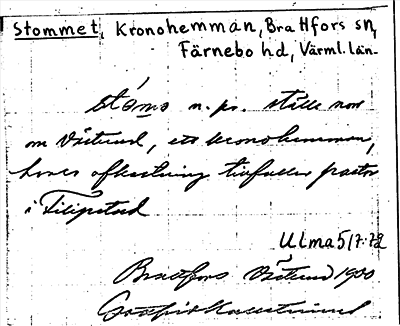 Stommet, Kronohemman, Brattfors sn,
Färnebo hd, Värml. län
n. pr. ställe norr
om Östlund, ett kronohemman,
hvars afkastning tillfaller pastor
i Filipstad
Ulma 5/7-79
Brattfors Östlund 1900
Gottfrid Kallstenius